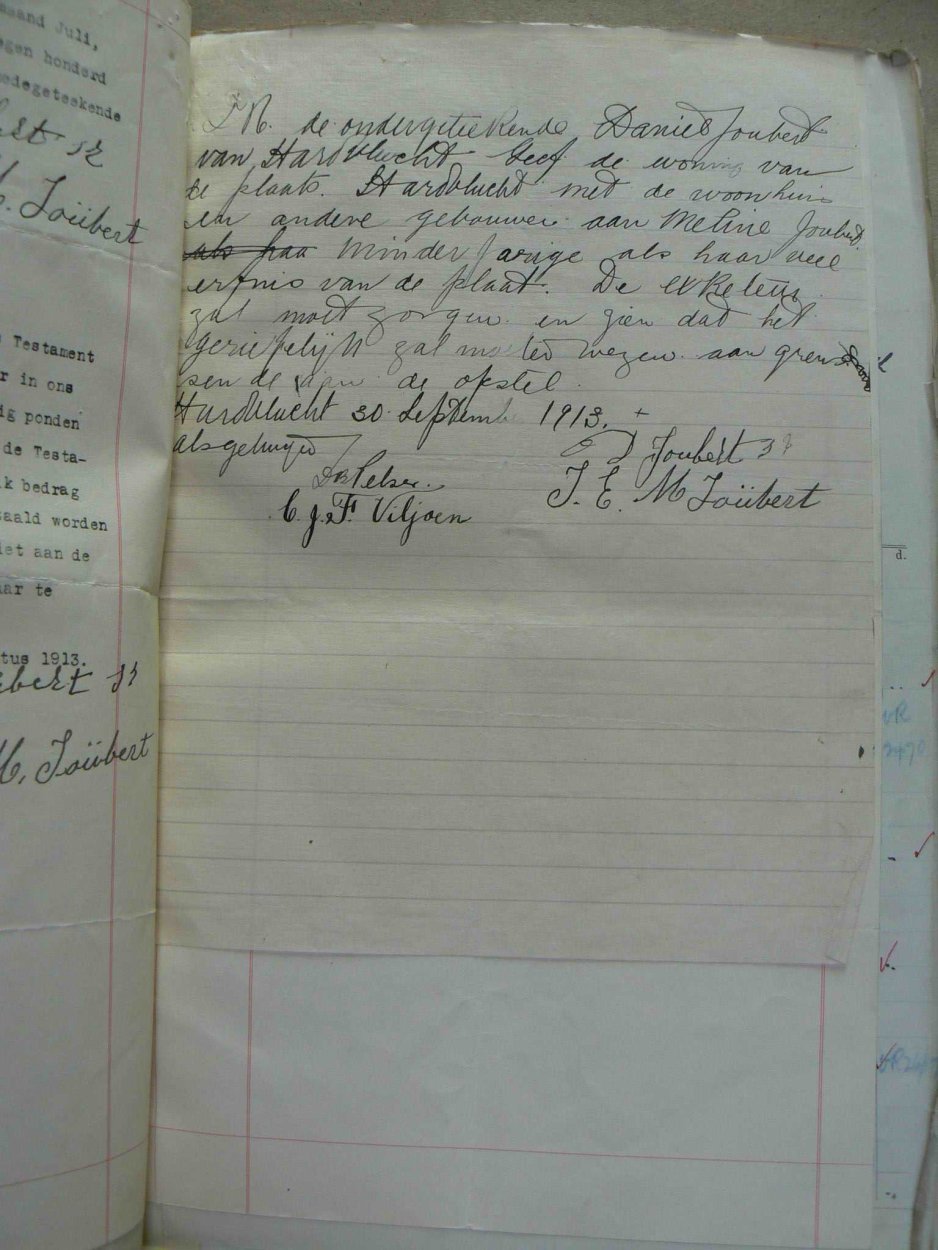 aand Juli,
egen honderd
edegeteekende
Joübert
Testament
r in ons
ig ponden
de Testa-
k bedrag
aald worden
iet aan de
aar te
tus 1913.
bert
M, Joübert
IK. de ondergeteekende Daniel Joubert
van Hardvlucht Geef de woning van
de plaats. Hardvlucht met de woonhuis
en andere gebouwen aan Meline Joubert
als haa Minder Jarige als haar deel
erfnis van de plaat. De
zal moet zorgen en zien dat het
Geriefelijk zal wezen aan
sen de aan de opstel.
Hardvlucht 30 Septemb 1913. +
Als getuigen
D Joubert
Pelser.
J. E. M Joübert
C. J. F. Viljoen
d.